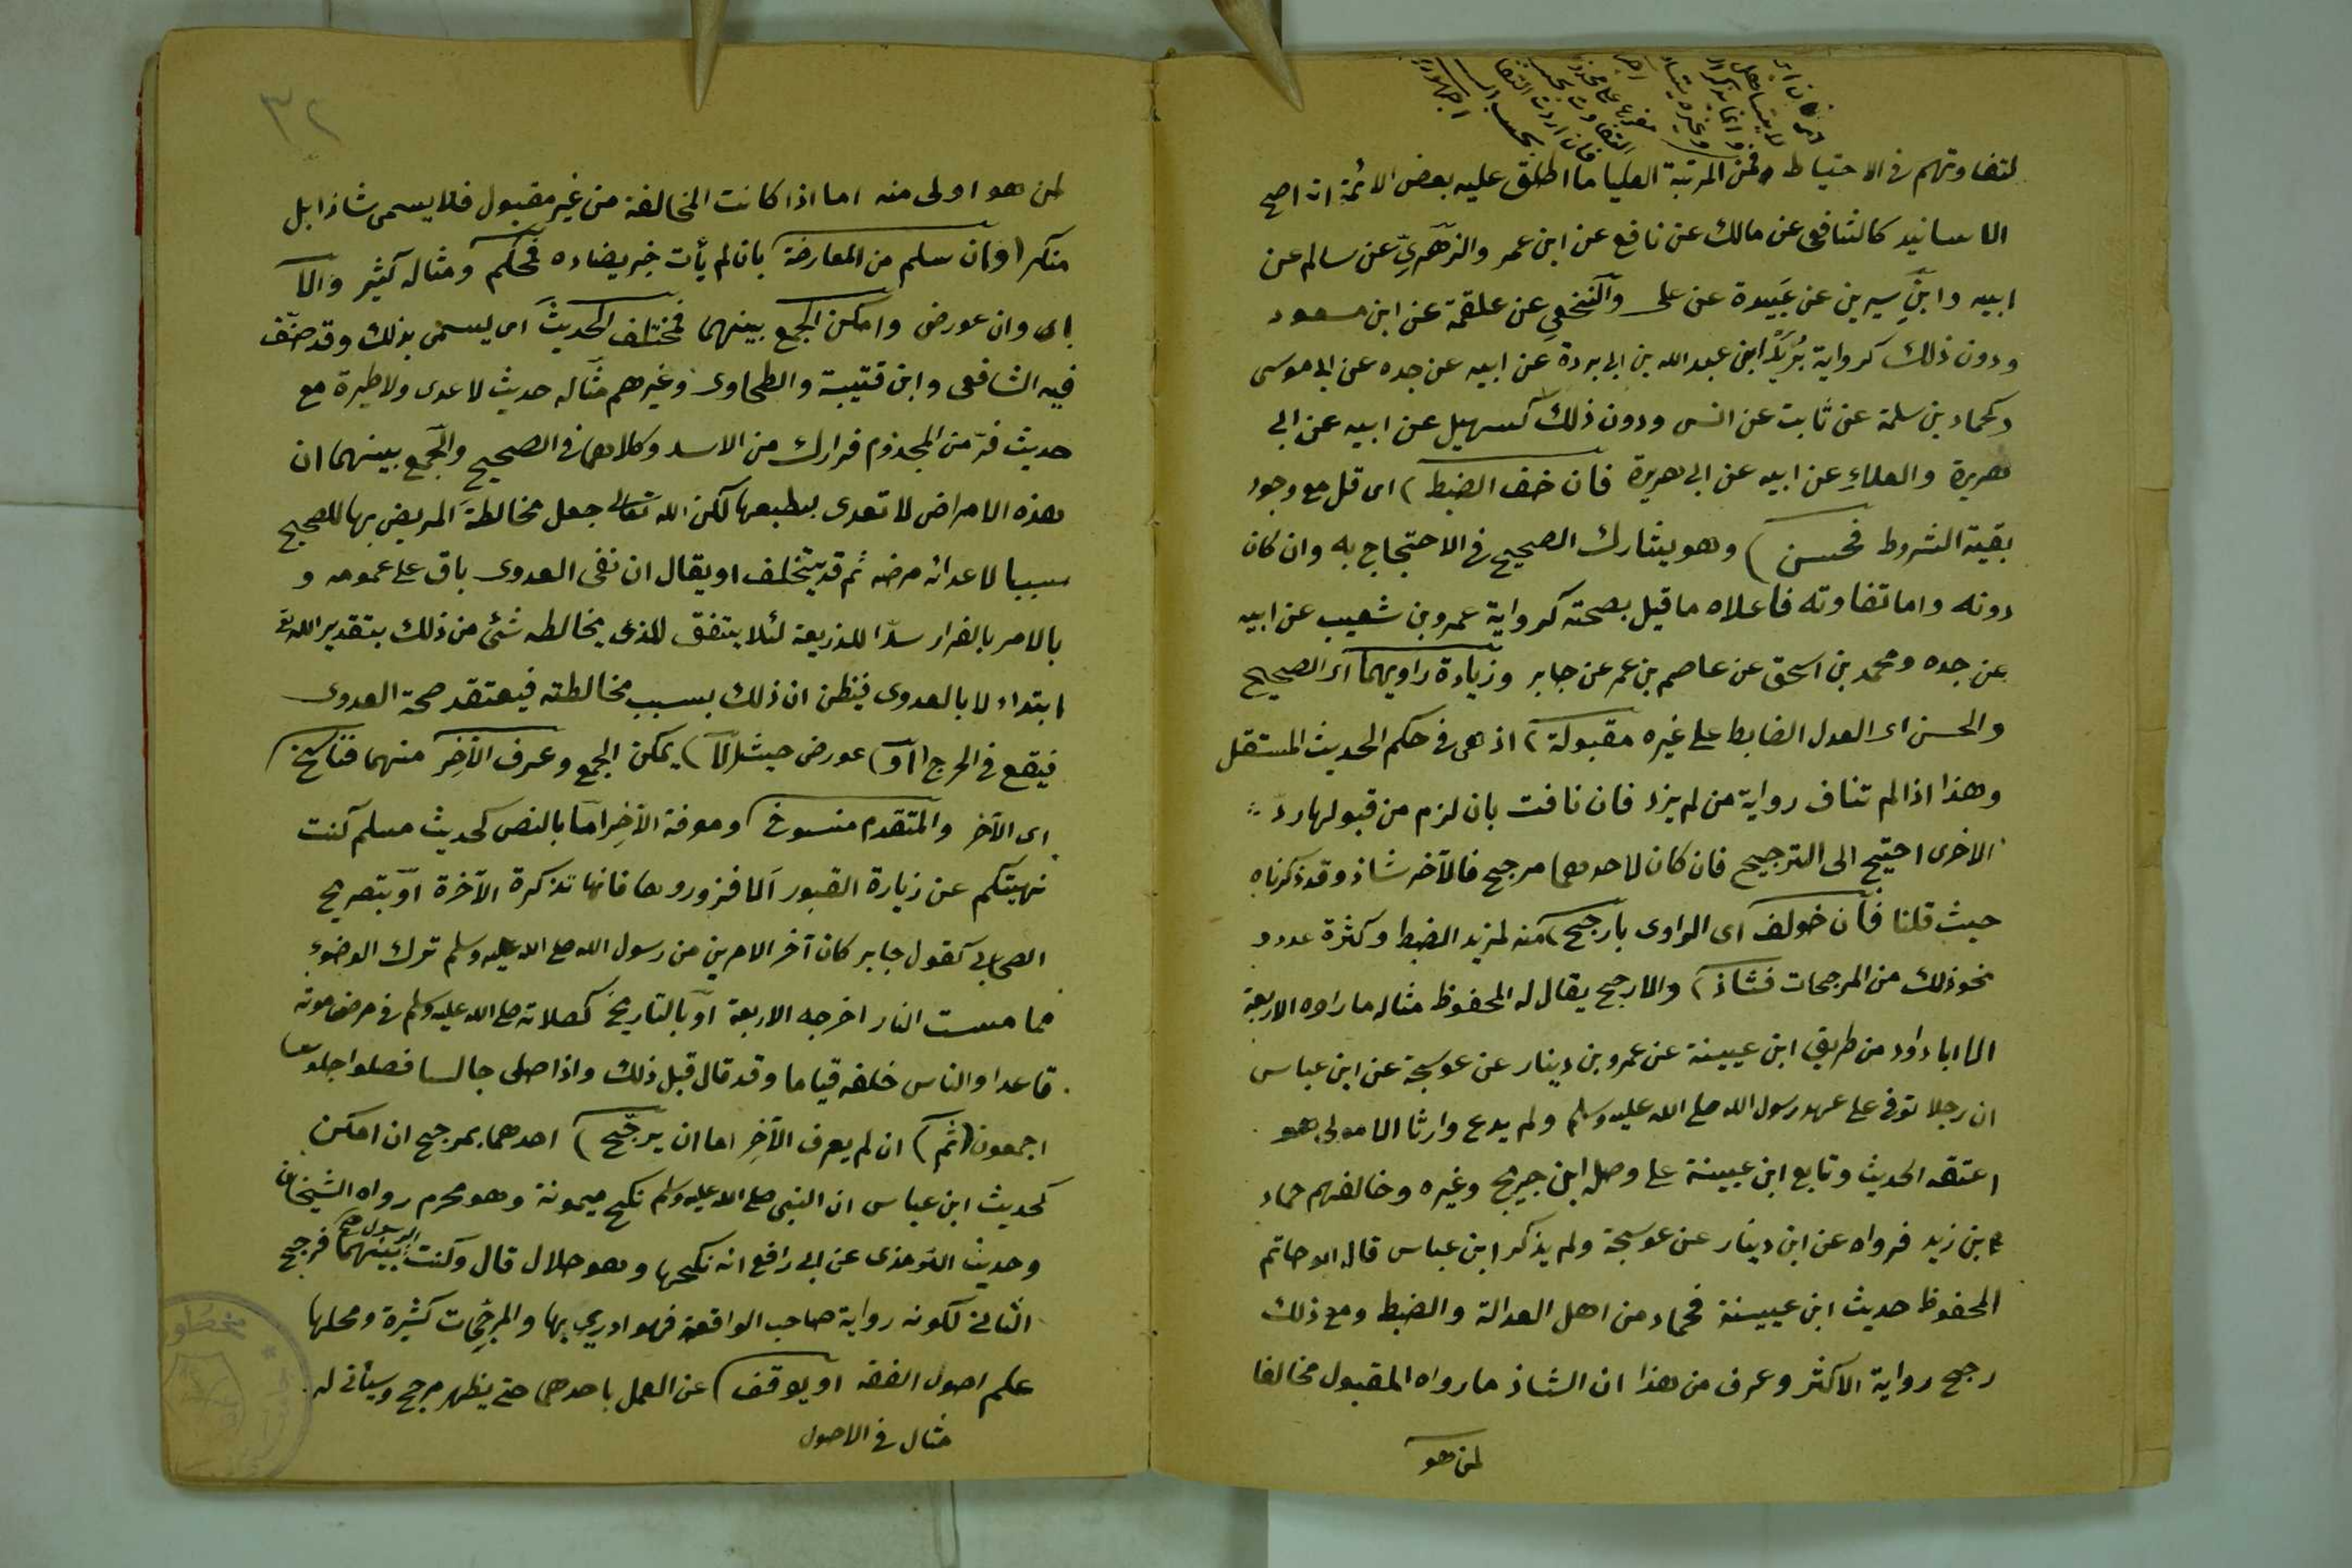 لتفاوتهم في الاحتياط فمن المرتبة العليا ما اطلق عليه بعض الائمة انه اصح
الاسانيد كالشافعي عن مالك عن نافع عن ابن عمر والزهري عن سالم عن
ابيه وابن سيرين عن عَبيدة عن على والنخعي عن علقمة عن ابن مسعود
ودون ذلك كرواية بُرَيْد ابن عبد الله بن ابى بردة عن ابيه عن جده عن ابى موسى
وكحماد بن سلمة عن ثابت عن انس ودون ذلك كسهيل عن ابيه عن ابي
هريرة والعلاء عن ابيه عن ابى هريرة فان خف الضبط) اى قل مع وجود
بقية الشروط فحسن) وهو يشارك الصحيح في الاحتجاج به وان كان
دونه واما تفاوته فاعلاه ما قيل بصحته كرواية عمرو بن شعيب عن ابيه
عن جده ومحمد بن اسحق عن عاصم بن عمر عن جابر وزيادة راويهما اى الصحيح
والحسن اى العدل الضابط على غيره مقبولة) اذ هى في حكم الحديث المستقل
وهذا اذا لم تناف رواية من لم يزد فان نافت بان لزم من قبولها ردّ
الاخرى احتيج الى الترجيح فان كان لاحدهما مرجح فالآخر شاذ وقد ذكرناه
حيث قلنا فان خولف اى الراوى بارجح) منه لمزيد الضبط وكثرة عدد و
نحو ذلك من المرجحات فشاذ) والارجح يقال له المحفوظ مثاله ما رواه الاربعة
الا ابا داود من طريق ابن عيينة عن عمرو بن دينار عن عوسجة عن ابن عباس
ان رجلا توفى على عهد رسول الله صلى الله عليه وسلم ولم يدع وارثا الا مولى هو
اعتقه الحديث وتابع ابن عيينة على وصله ابن جريج وغيره وخالفهم حماد
بن زيد فرواه عن ابن دينار عن عوسجة ولم يذكر ابن عباس قال ابو حاتم
المحفوظ حديث ابن عيينة فحماد من اهل العدالة والضبط ومع ذلك
رجح رواية الاكثر وعرف من هذا ان الشاذ ما رواه المقبول مخالفا
لمن هو
٣٢
لمن هو اولى منه اما اذا كانت المخالفة من غير مقبول فلا يسمى شاذا بل
منكر (وان سلم من المعارضة بان لم يأت خبر يضاده فمحكم ومثاله كثير والا
اى وان عورض وامكن الجمع بينهما فمختلف الحديث اى يسمى بذلك وقد صنّف
فيه الشافعى وابن قتيبة والطحاوى وغيرهم مثاله حديث لا عدوى ولا طيرة مع
حديث فرّ من المجذوم فرارك من الاسد وكلاهما في الصحيح والجمع بينهما ان
هذه الامراض لا تعدى بطبعها لكن الله تعالى جعل مخالطة المريض بها للصحيح
سببا لاعدائه مرضه ثم قد يتخلف او يقال ان نفى العدوى باق على عمومه و
الامر بالفرار سدّا للذريعة لئلا يتفق للذى يخالطه شئ من ذلك بتقدير الله تعالى
ابتداء لا بالعدوى فيظن ان ذلك بسبب مخالطته فيعتقد صحة العدوى
فيقع في الحرج (او) عورض حيث (لا) يمكن الجمع وعرف الآخِر منهما فناسخ
اى الآخر والمتقدم منسوخ) ومعرفة الآخِر اما بالنص كحديث مسلم كنت
نهيتكم عن زيارة القبور الا فزوروها فانها تذكرة الآخرة او بتصريح
الصحابى كقول جابر كان آخر الامرين من رسول الله صلى الله عليه وسلم ترك الوضوء
مما مست النار اخرجه الاربعة او بالتاريخ كصلاته صلى الله عليه وسلم في مرض موته
قاعدا والناس خلفه قياما وقد قال قبل ذلك واذا صلى جالسا فصلوا جلوسا
اجمعون (ثم) ان لم يعرف الآخِر اما ان يرجّح) احدهما بمرجح ان امكن
كحديث ابن عباس ان النبى صلى الله عليه وسلم نكح ميمونة وهو محرم رواه الشيخان
وحديث الترمذى عن ابى رافع انه نكحها وهو حلال قال وكنت الرسول بينهما فرجح
الثانى لكونه رواية صاحب الواقعة فهو ادرى بها والمرجّحات كثيرة ومحلها
علم اصول الفقه او يوقف) عن العمل باحدهما حتى يظهر مرجح وسيأتى له
مثال في الاصول